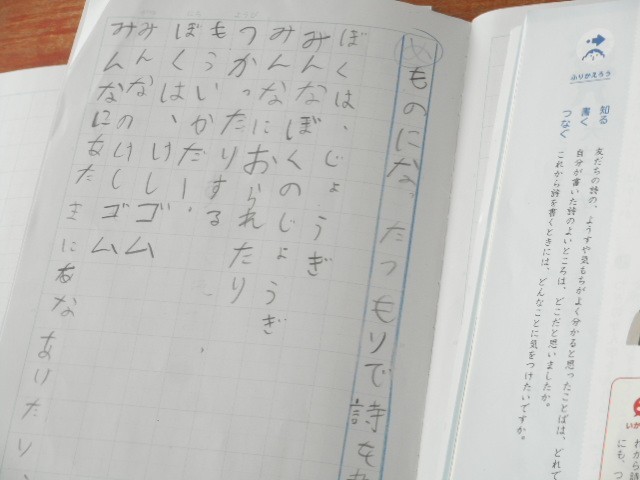 ものになったつもりで詩を
ぼくは、じょうぎ
みんなぼくのじょうぎ
みんなにおられたり
つかったりする
もういかだー、
ぼくは、けしゴム
みんなのけしゴム
みんなに
ふりかえろう
知る
友だちの詩の、ようすや気もちがよく分かると思ったことばは、どれで
書く
自分が書いた詩のよいところは、どこだと思いましたか。
つなぐ
これから詩を書くときには、どんなことに気をつけたいですか。
いか
にも、つ